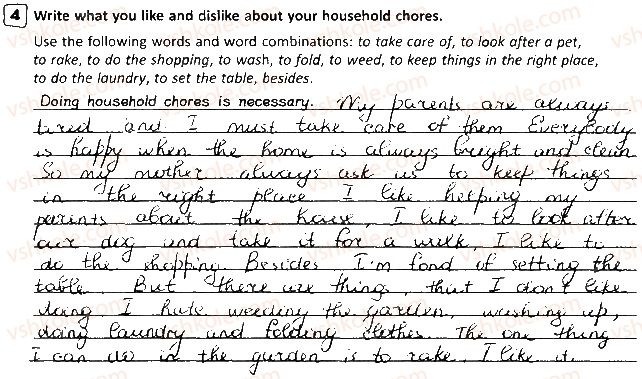 4 Write what you like and dislike about your household chores.
Use the following words and word combinations: to take care of, to look after a pet,
to rake, to do the shopping, to wash, to fold, to weed, to keep things in the right place,
to do the laundry, to set the table, besides.
Doing household chores is necessary. My parents are always
tired and I must take care of them Everybody
is happy when the home is always bright and clean
So my mother always ask us to keep things
in the right place I like helping my
parents about the house, I like to look after
our dog and take it for a walk, I like to
do the shopping. Besides I'm fond of setting the
table. But there are things, that I don't like
doing I hate weeding the garden, washing up,
doing laundry and folding clothes. The one thing
I can do in the garden is to rake, I like it.